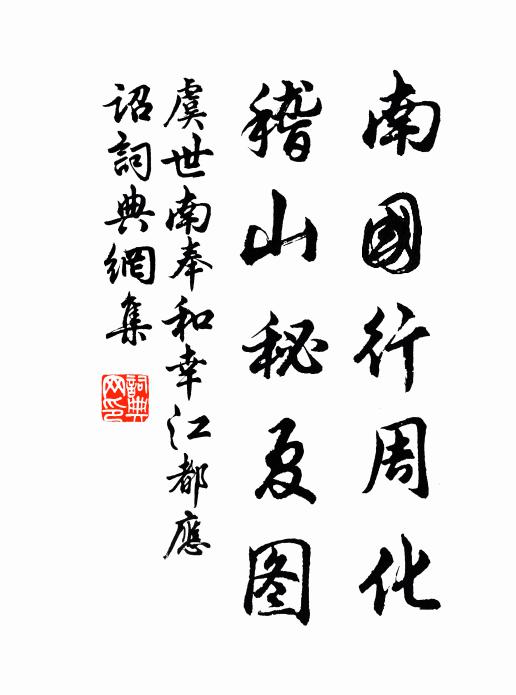 南國行周化
稽山秘夏图
虞世南奉和幸江都應
詔詞典網集
詞典
网印